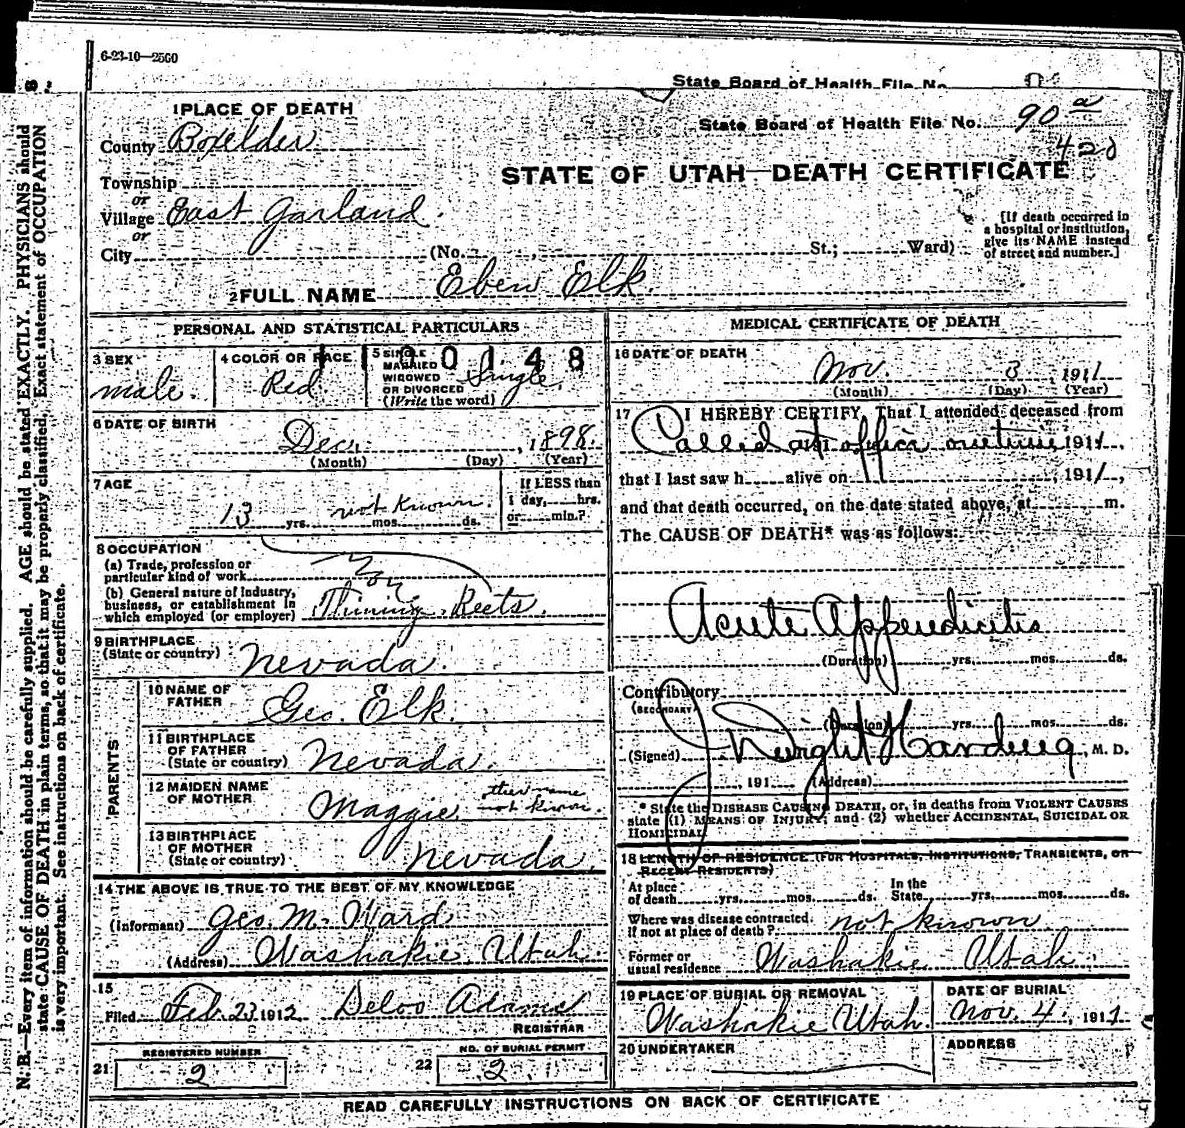 6-23-10—2500
State Board of Health File No.
1 PLACE OF DEATH
State Board of Health File No. 90 a
County Boxelder
420
STATE OF UTAH—DEATH CERTIFICATE
Township
or
Village East Garland.
or
City (No. , St.; Ward)
[If death occurred in
a hospital or institution,
give its NAME instead
of street and number.]
2 FULL NAME Eben Elk.
PERSONAL AND STATISTICAL PARTICULARS
3 SEX
male.
4 COLOR OR RACE
Red
0148
5 SINGLE
MARRIED
WIDOWED
OR DIVORCED
(Write the word)
Single.
6 DATE OF BIRTH
Dec. , 1898.
(Month) (Day) (Year)
7 AGE
13 yrs. not known. mos. ds.
If LESS than
1 day, hrs.
or min.?
8 OCCUPATION
(a) Trade, profession or
particular kind of work
(b) General nature of Industry,
business, or establishment in
which employed (or employer) Thinning Beets.
9 BIRTHPLACE
(State or country) Nevada.
PARENTS
10 NAME OF
FATHER Geo. Elk.
11 BIRTHPLACE
OF FATHER
(State or country) Nevada.
12 MAIDEN NAME
OF MOTHER Maggie. other name
not known.
13 BIRTHPLACE
OF MOTHER
(State or country) Nevada
14 THE ABOVE IS TRUE TO THE BEST OF MY KNOWLEDGE
(Informant) Geo. M. Ward
(Address) Washakie Utah.
15
Filed Feb. 23 1912 Delos Adams
REGISTRAR
REGISTERED NUMBER
21 2
NO. OF BURIAL PERMIT
22 2
MEDICAL CERTIFICATE OF DEATH
16 DATE OF DEATH
Nov. 3, 1911
(Month) (Day) (Year)
17 I HEREBY CERTIFY, That I attended deceased from
Called at office one time 1911,
that I last saw h alive on , 191/,
and that death occurred, on the date stated above, at m.
The CAUSE OF DEATH* was as follows:
Acute Appendicitis
(Duration) yrs. mos. ds.
Contributory
(SECONDARY)
(Duration) yrs. mos. ds.
(Signed) J Dwight Harding, M. D.
, 191 (Address)
* State the DISEASE CAUSING DEATH, or, in deaths from VIOLENT CAUSES
state (1) MEANS OF INJURY; and (2) whether ACCIDENTAL, SUICIDAL OR
HOMICIDAL
18 LENGTH OF RESIDENCE (FOR HOSPITALS, INSTITUTIONS, TRANSIENTS, OR
RECENT RESIDENTS)
At place
of death yrs. mos. ds.
In the
State yrs. mos. ds.
Where was disease contracted
if not at place of death? not known
Former or
usual residence Washakie Utah.
19 PLACE OF BURIAL OR REMOVAL
Washakie Utah.
DATE OF BURIAL
Nov. 4., 1911
20 UNDERTAKER
ADDRESS
READ CAREFULLY INSTRUCTIONS ON BACK OF CERTIFICATE
N. B.—Every item of information should be carefully supplied. AGE should be stated EXACTLY. PHYSICIANS should
state CAUSE OF DEATH in plain terms, so that it may be properly classified. Exact statement of OCCUPATION
is very important. See instructions on back of certificate.